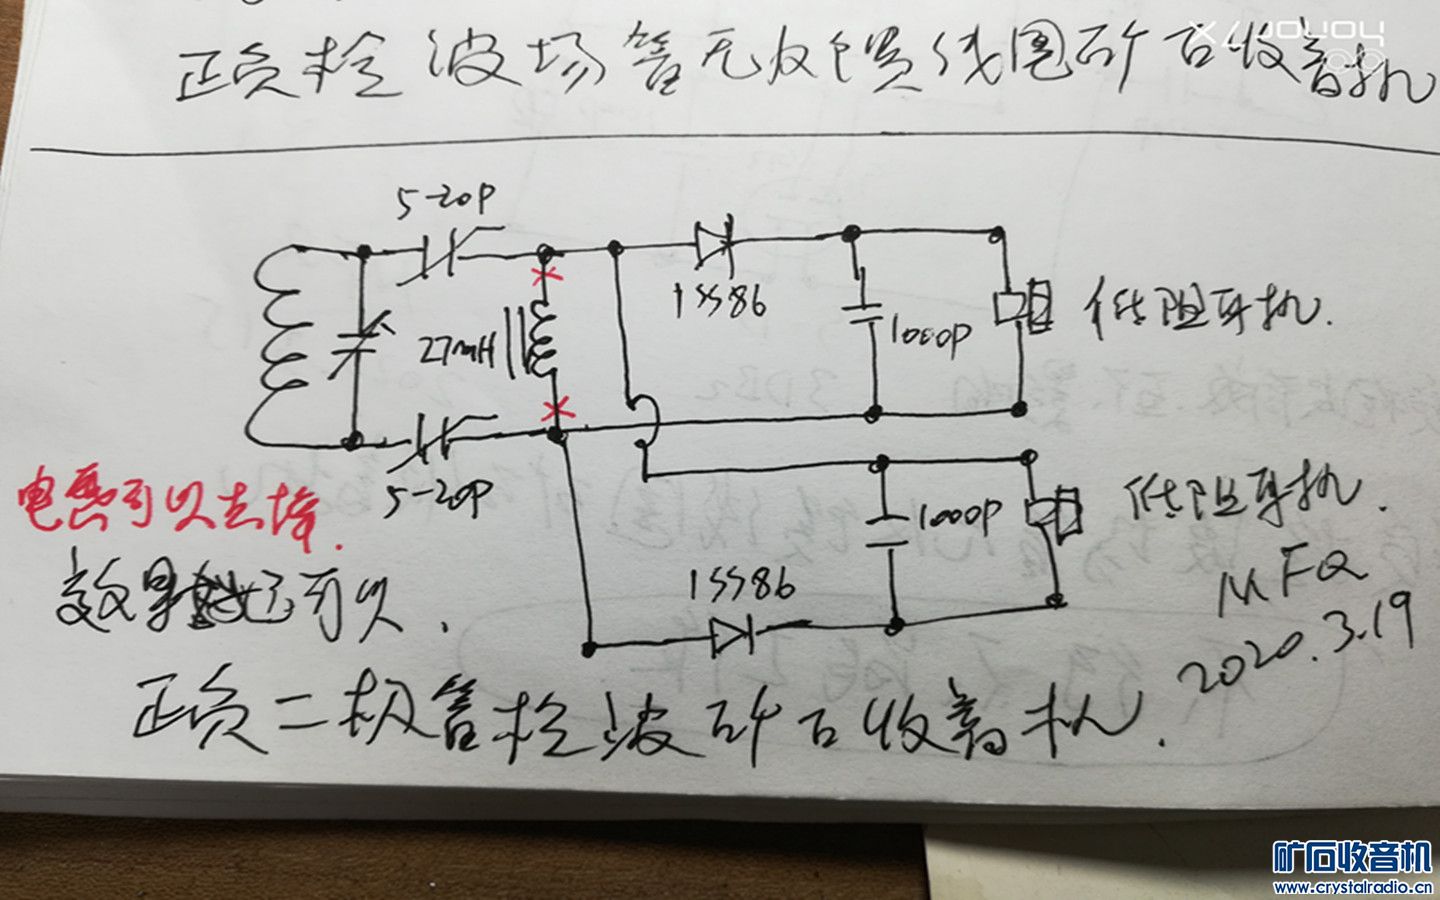 honor 7X
正负检波场管无反馈线圈矿石收音机
5-20P
1SS86
27mH
1000P
低阻耳机.
5-20P
1000P
低阻耳机.
电感可以去掉.
1SS86
效果还可以.
MFQ
2020.3.19
正负二极管检波矿石收音机.
矿石收音机
www.crystalradio.cn